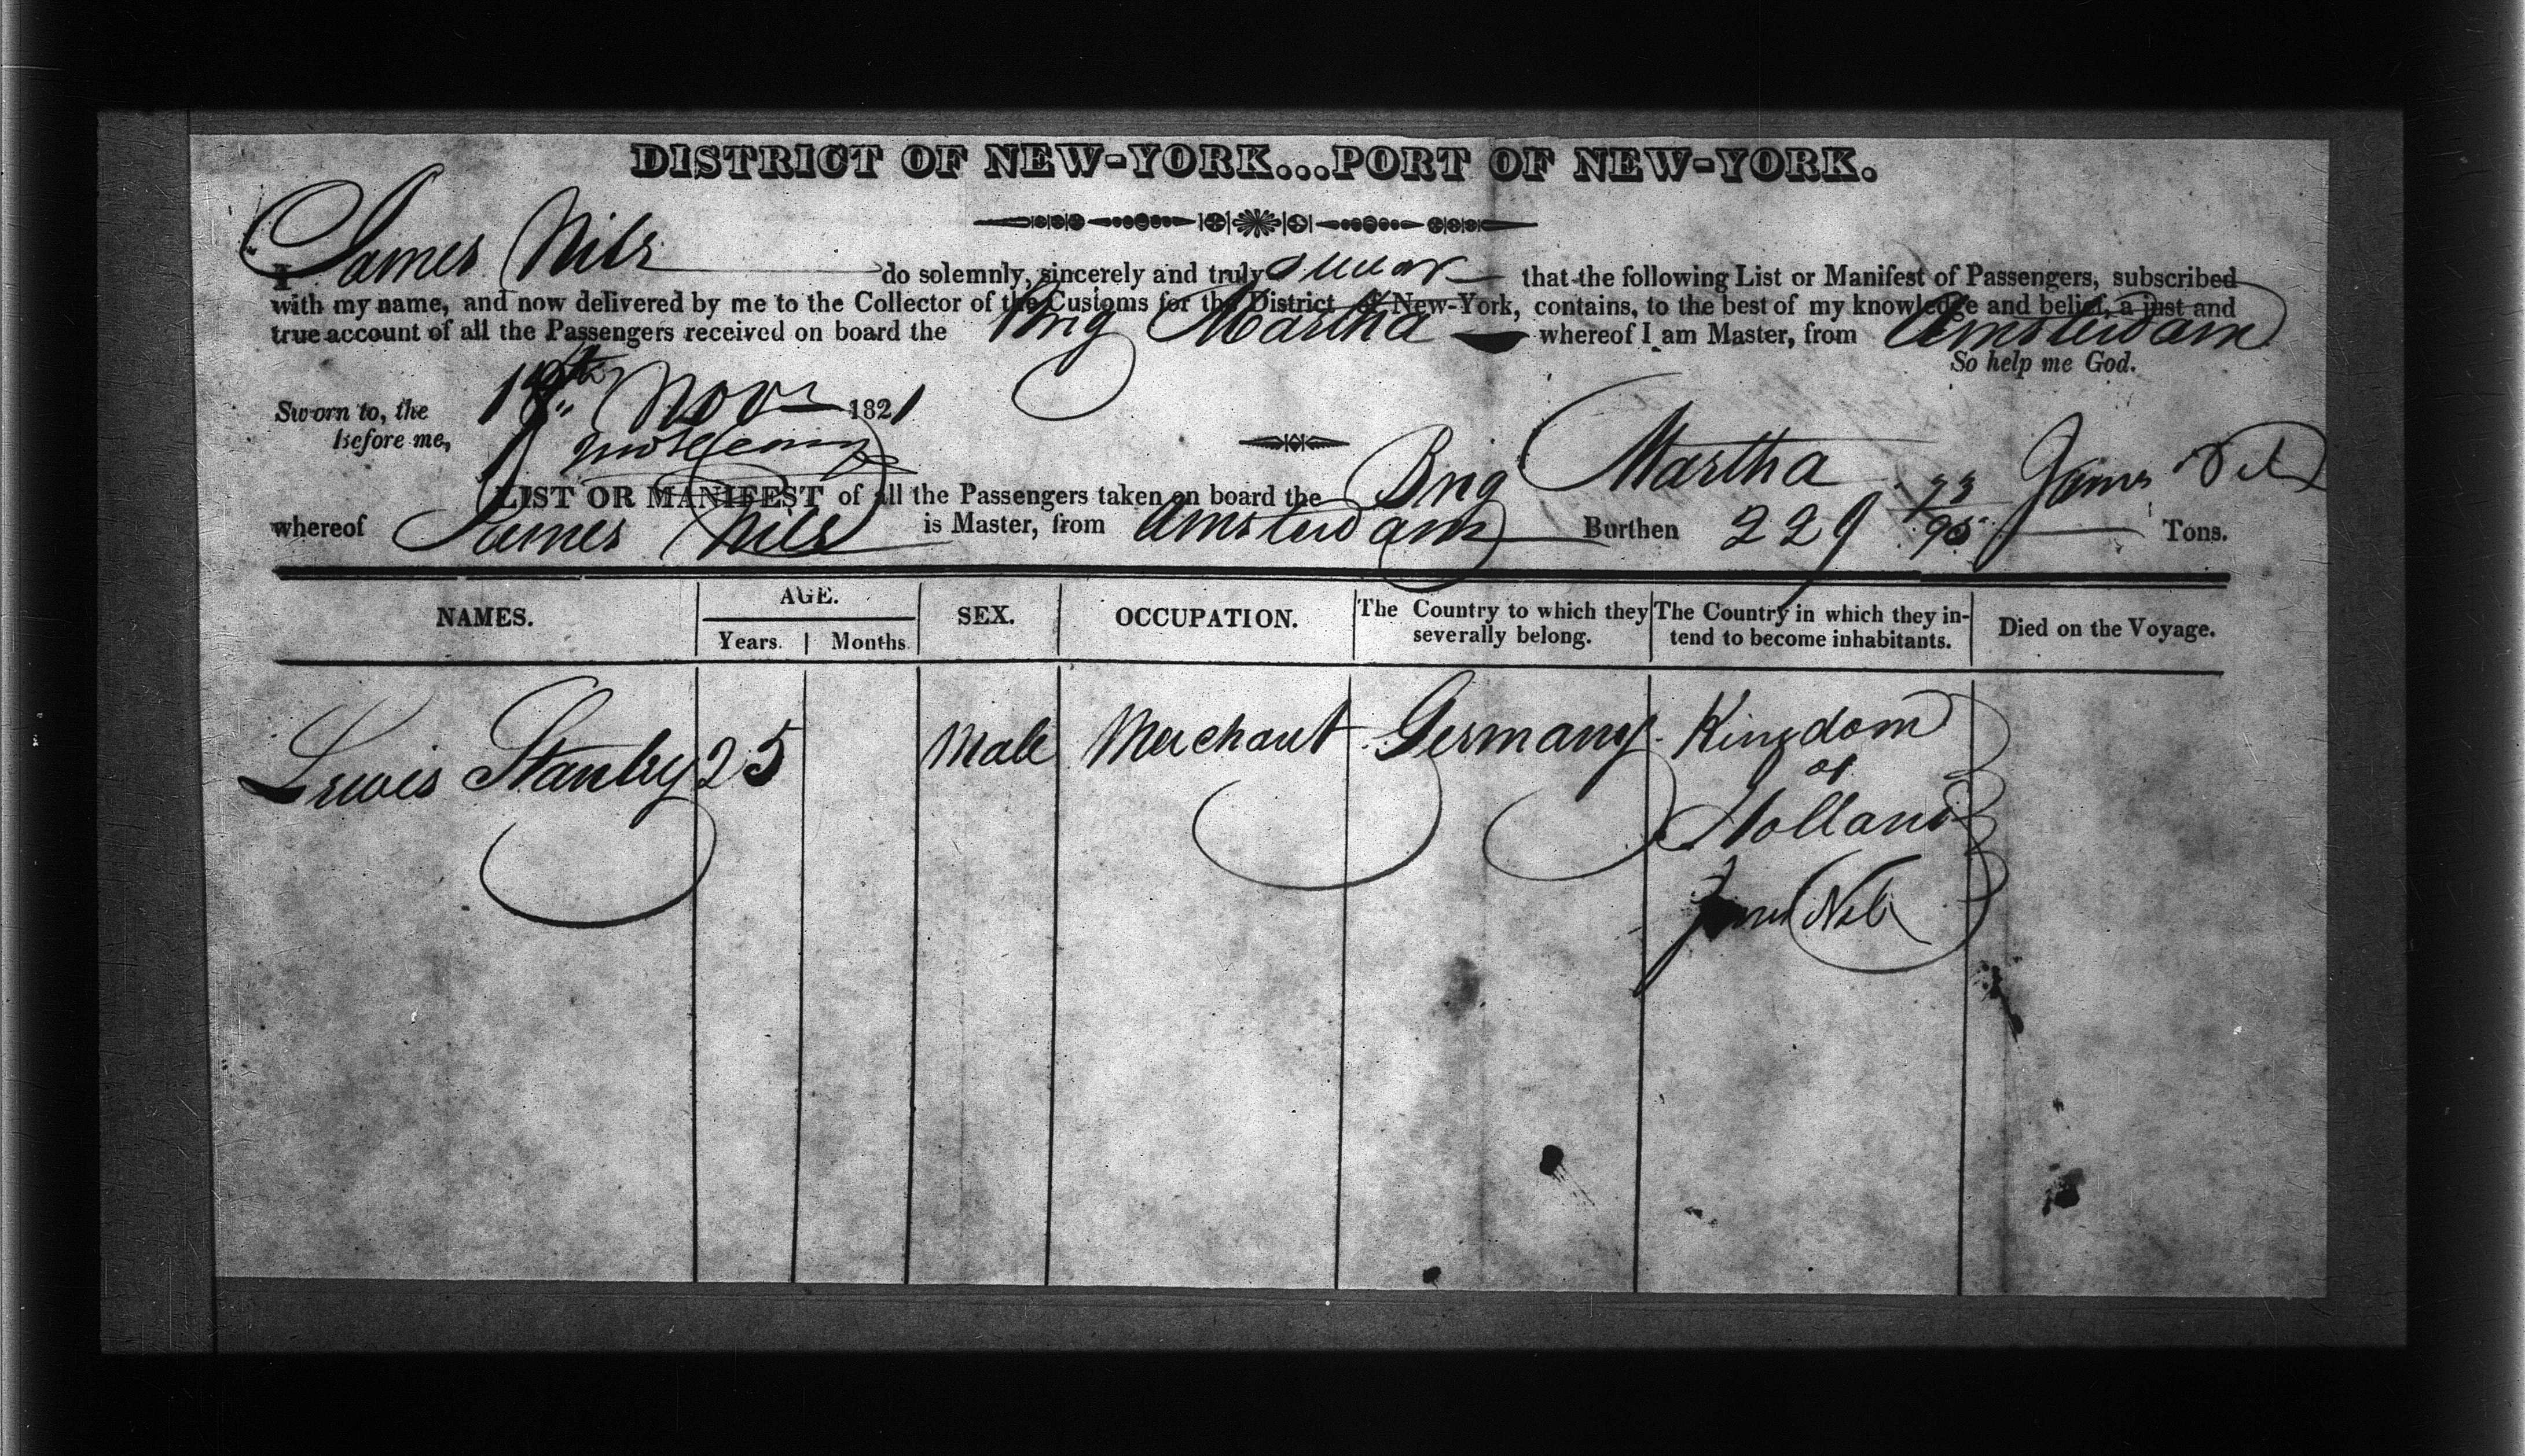 DISTRICT OF NEW-YORK...PORT OF NEW-YORK.
I James Nils do solemnly, sincerely and truly swear that the following List or Manifest of Passengers, subscribed
with my name, and now delivered by me to the Collector of the Customs for the District of New-York, contains, to the best of my knowledge and belief, a just and
true account of all the Passengers received on board the Brig Martha whereof I am Master, from Amsterdam
So help me God.
Sworn to, the Novr 1821
Before me,
LIST OR MANIFEST of all the Passengers taken on board the Brig Martha James
whereof James Nils is Master, from Amsterdam Burthen 229 73/95 Tons.
NAMES. AGE. SEX. OCCUPATION. The Country to which they severally belong. The Country in which they in- tend to become inhabitants. Died on the Voyage.
Years. Months.
Lewis Stanley 25 Male Merchant Germany Kingdom
of
Holland
James